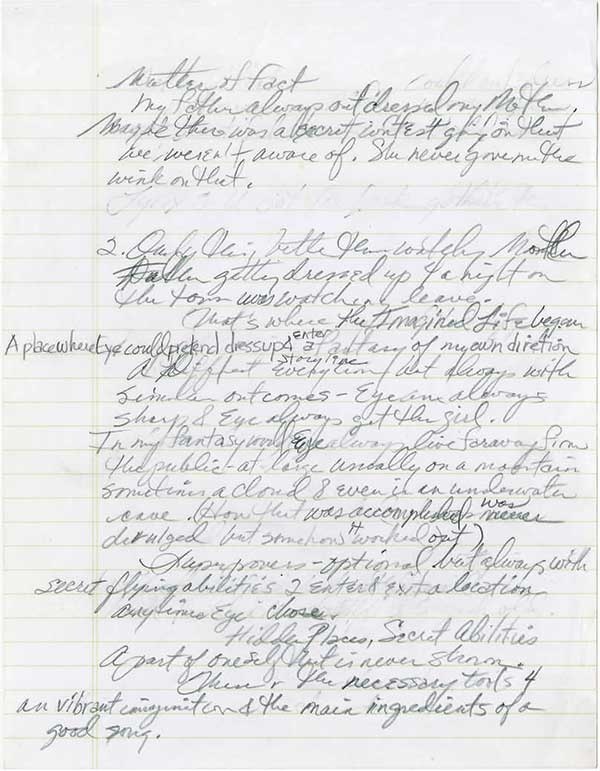 Matter of Fact
My father always outdressed my Mother.
Maybe there was a secret contest going on that
we weren't aware of. She never gave me the
wink on that.
2. Only thing better than watching Mother
& Father getting dressed up 4 a night on
the town was watching leave.
That's where the Imagined Life began
A place where Eye could pretend dressup & enter a fantasy of my own diretion
A different storyline everytime but always with
similar outcomes - Eye am always
sharp & Eye always get the girl.
In my fantasy world Eye always live faraway from
the public-at large usually on a mountain
sometimes a cloud & even in an underwater
cave. (How that was accomplished was never
divulged but somehow it worked out)
Superpowers - optional but always with
secret flying abilities 2 enter & exit a location
anytime Eye chose.
Hidden Places, Secret Abilities
A part of oneself that is never shown.
These r the necessary tools 4
an vibrant imagination & the main ingredients of a
good song.